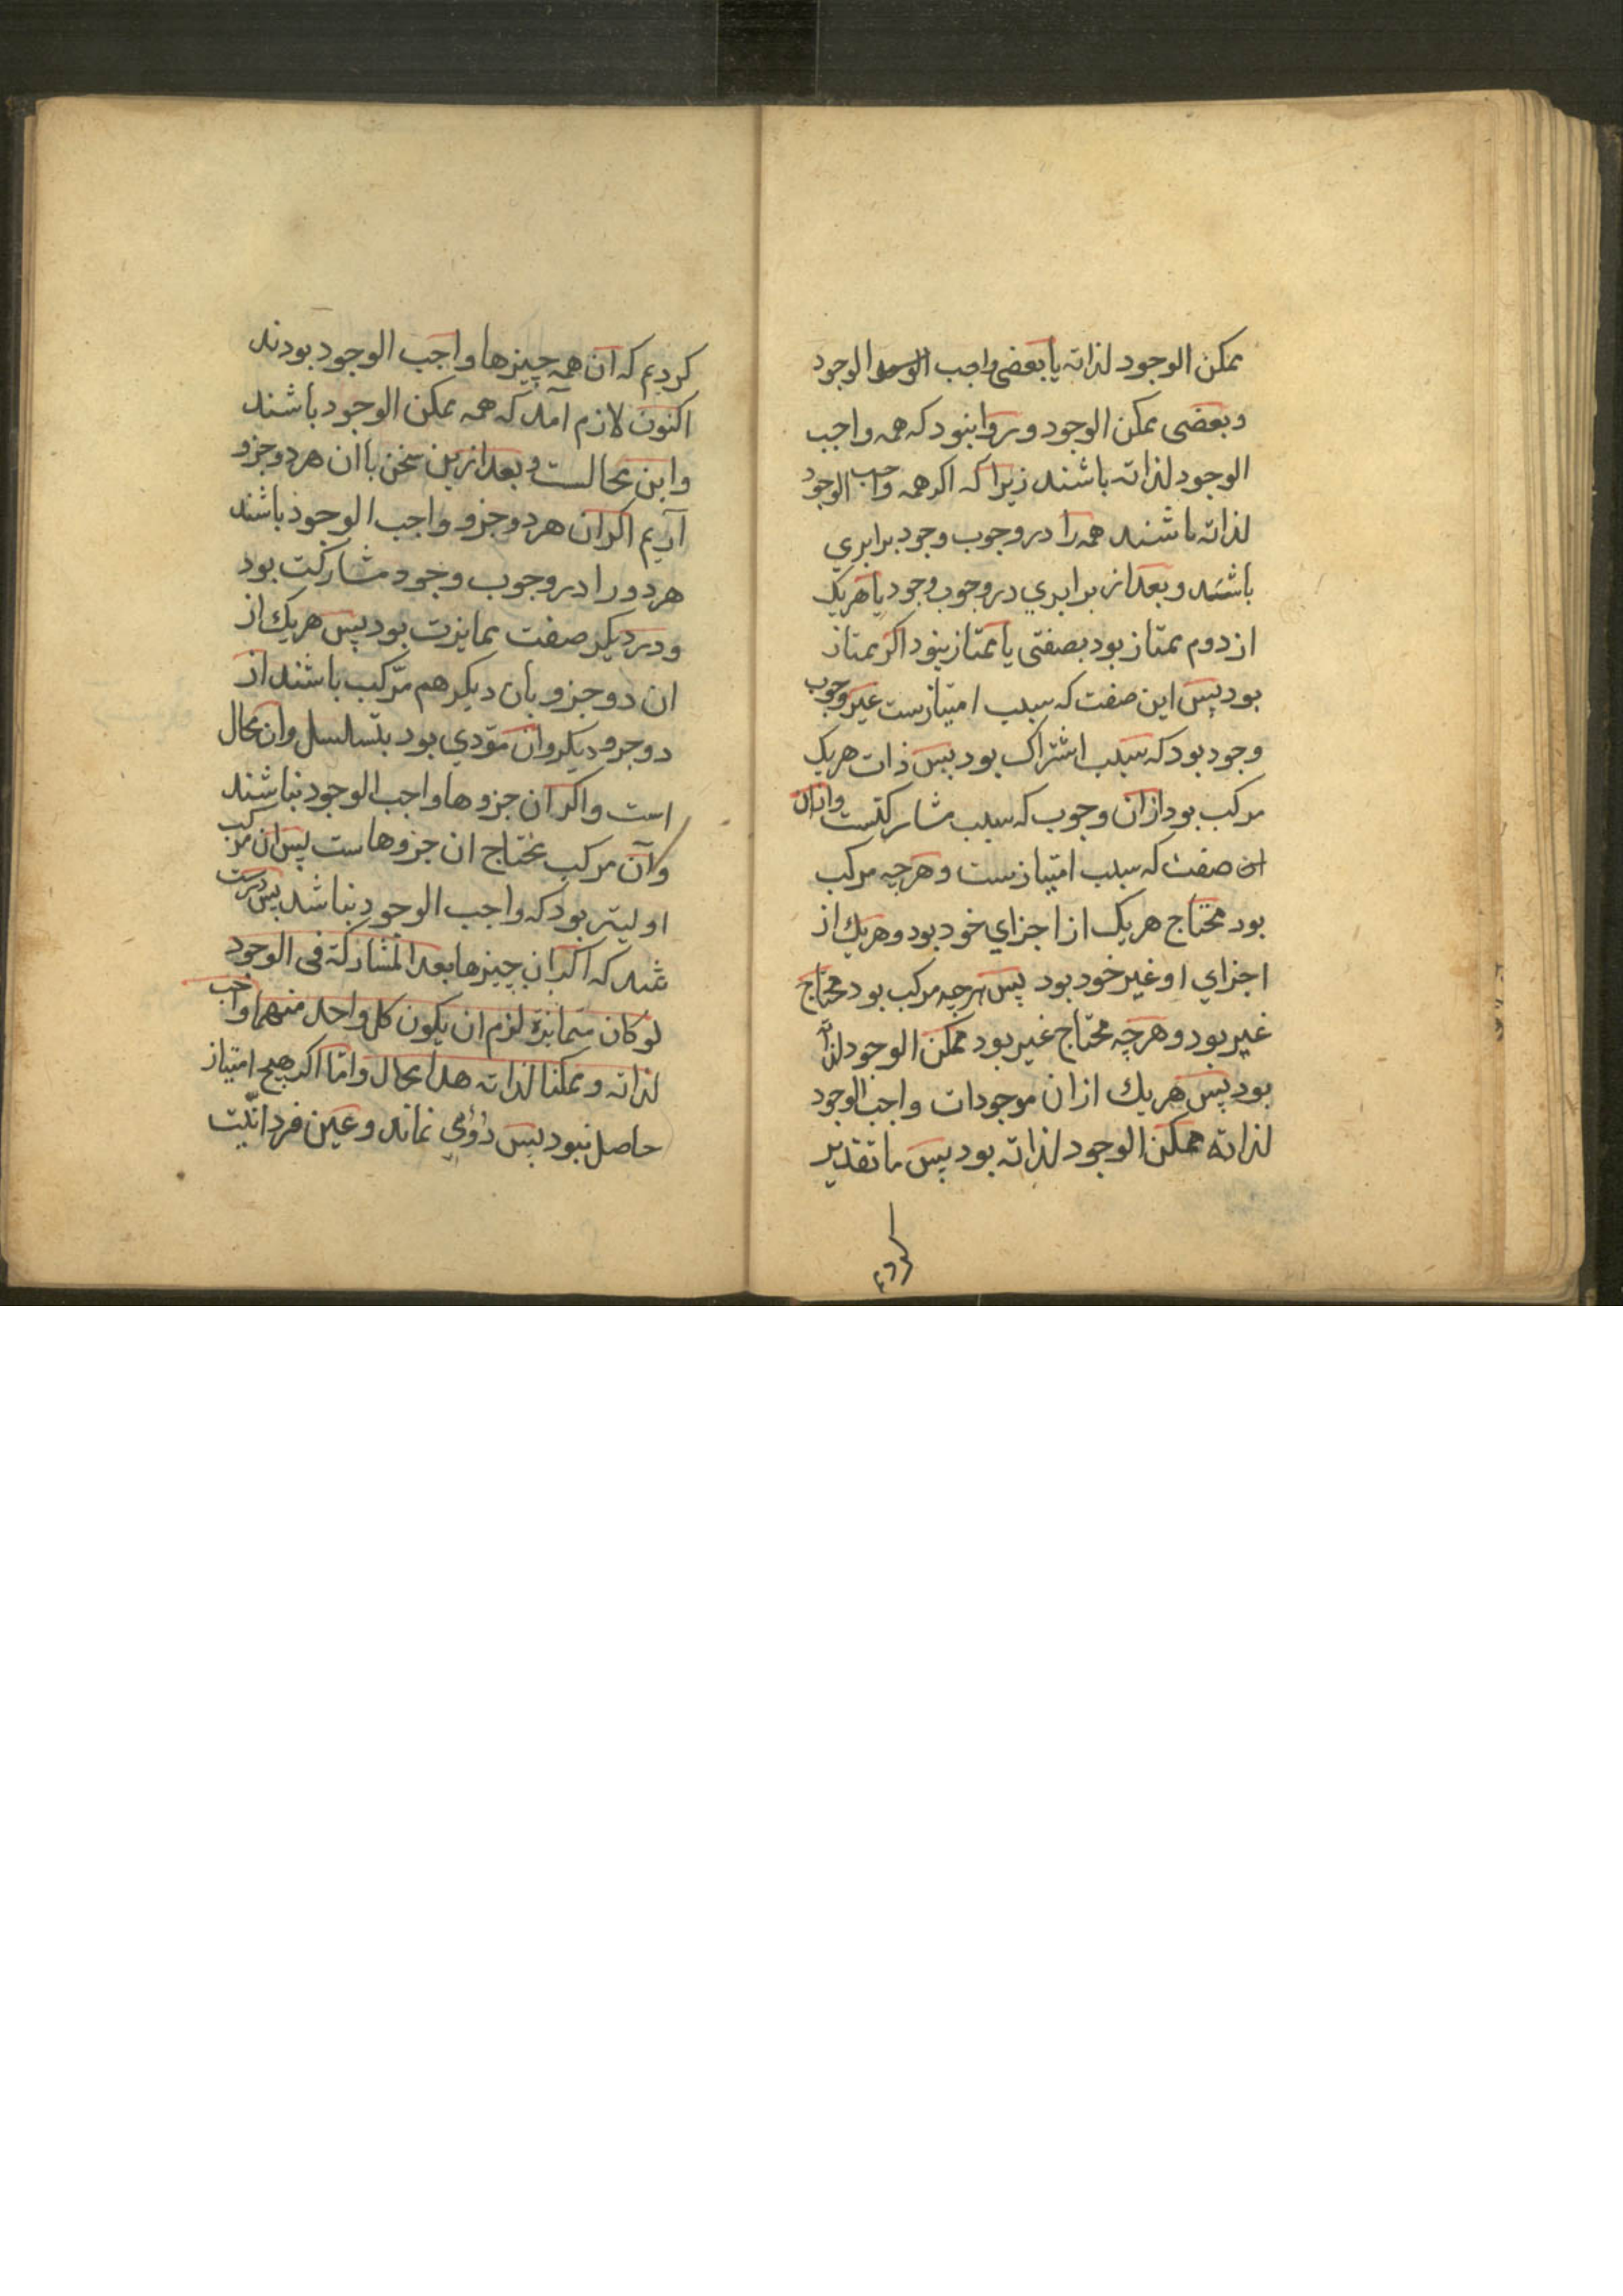 ممکن الوجود لذاته یا بعضی واجب الوجود
و بعضی ممکن الوجود و روا نبود که همه واجب
الوجود لذاته باشند زیرا که اکر همه واجب الوجود
لذاته باشند همه را در وجوب وجود برابري
باشند و بعد از برابري در وجوب وجود یا هریک
از دوم ممتاز بود بصفتی یا ممتاز نبود اکر ممتاز
بود پس این صفت که سبب امتیازست غیر وجوب
وجود بود که سبب اشتراک بود پس ذات هریک
مرکب بود ازان وجوب که سبب مشارکتست وازان
صفت که سبب امتیازست و هرچه مرکب
بود محتاج هریک از اجزاي خود بود و هریک از
اجزاي او غیر خود بود پس هرچه مرکب بود محتاج
غیر بود و هرچه محتاج غیر بود ممکن الوجود لذاته
بود پس هریک ازان موجودات واجب الوجود
لذاته ممکن الوجود لذاته بود پس ما تقدیر
کردیم
کردیم که آن همه چیزها واجب الوجود بودند
اکنون لازم آمد که همه ممکن الوجود باشند
و این محالست و بعد ازین سخن باان هر دو جزو
آریم اکر ان هر دو جزو واجب الوجود باشند
هر دو را در وجوب وجود مشارکت بود
و در دیکر صفت ممایزت بود پس هریک از
ان دو جزو بان دیکر هم مرکب باشند از
دو جزو دیکر وان مؤدي بود بتسلسل وان محال
است و اکر ان جزوها واجب الوجود نباشند
وآن مرکب محتاج ان جزوهاست پس ان مرکب
اولیتر بود که واجب الوجود نباشد پس درست
شد که اکر ان چیزها بعد المشارکة فی الوجود
لو کان متمایزة لزم ان یکون کل واحد منهما واجب
لذاته و ممکنا لذاته هذا محال و امّا اکر هیچ امتیاز
حاصل نبود پس دؤمي نماند و عین فردانیّت